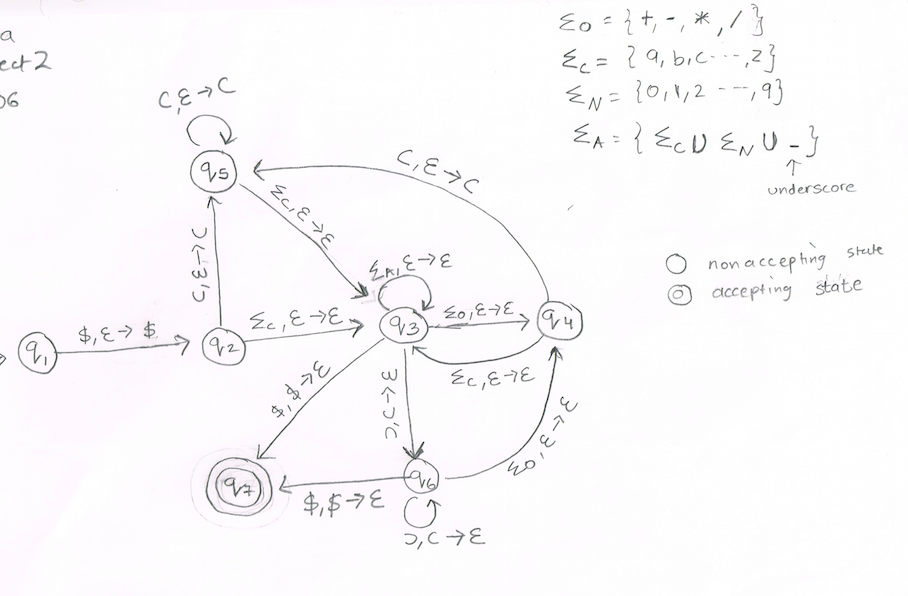 a
ect2
06
Σo = {+,-,*,/}
Σc = {a,b,c---,z}
ΣN = {0,1,2---,9}
ΣA = {Σc U ΣN U _}
↑
underscore
nonaccepting state
accepting state
C,ε→C
C,ε→C
q5
Σc,ε→ε
C,ε→C
ΣA,ε→ε
$,ε→$
Σc,ε→ε
Σo,ε→ε
q1
q2
q3
q4
Σc,ε→ε
$,$→ε
Ɔ,C→ε
Σo,ε→ε
q7
q6
$,$→ε
Ɔ,C→ε